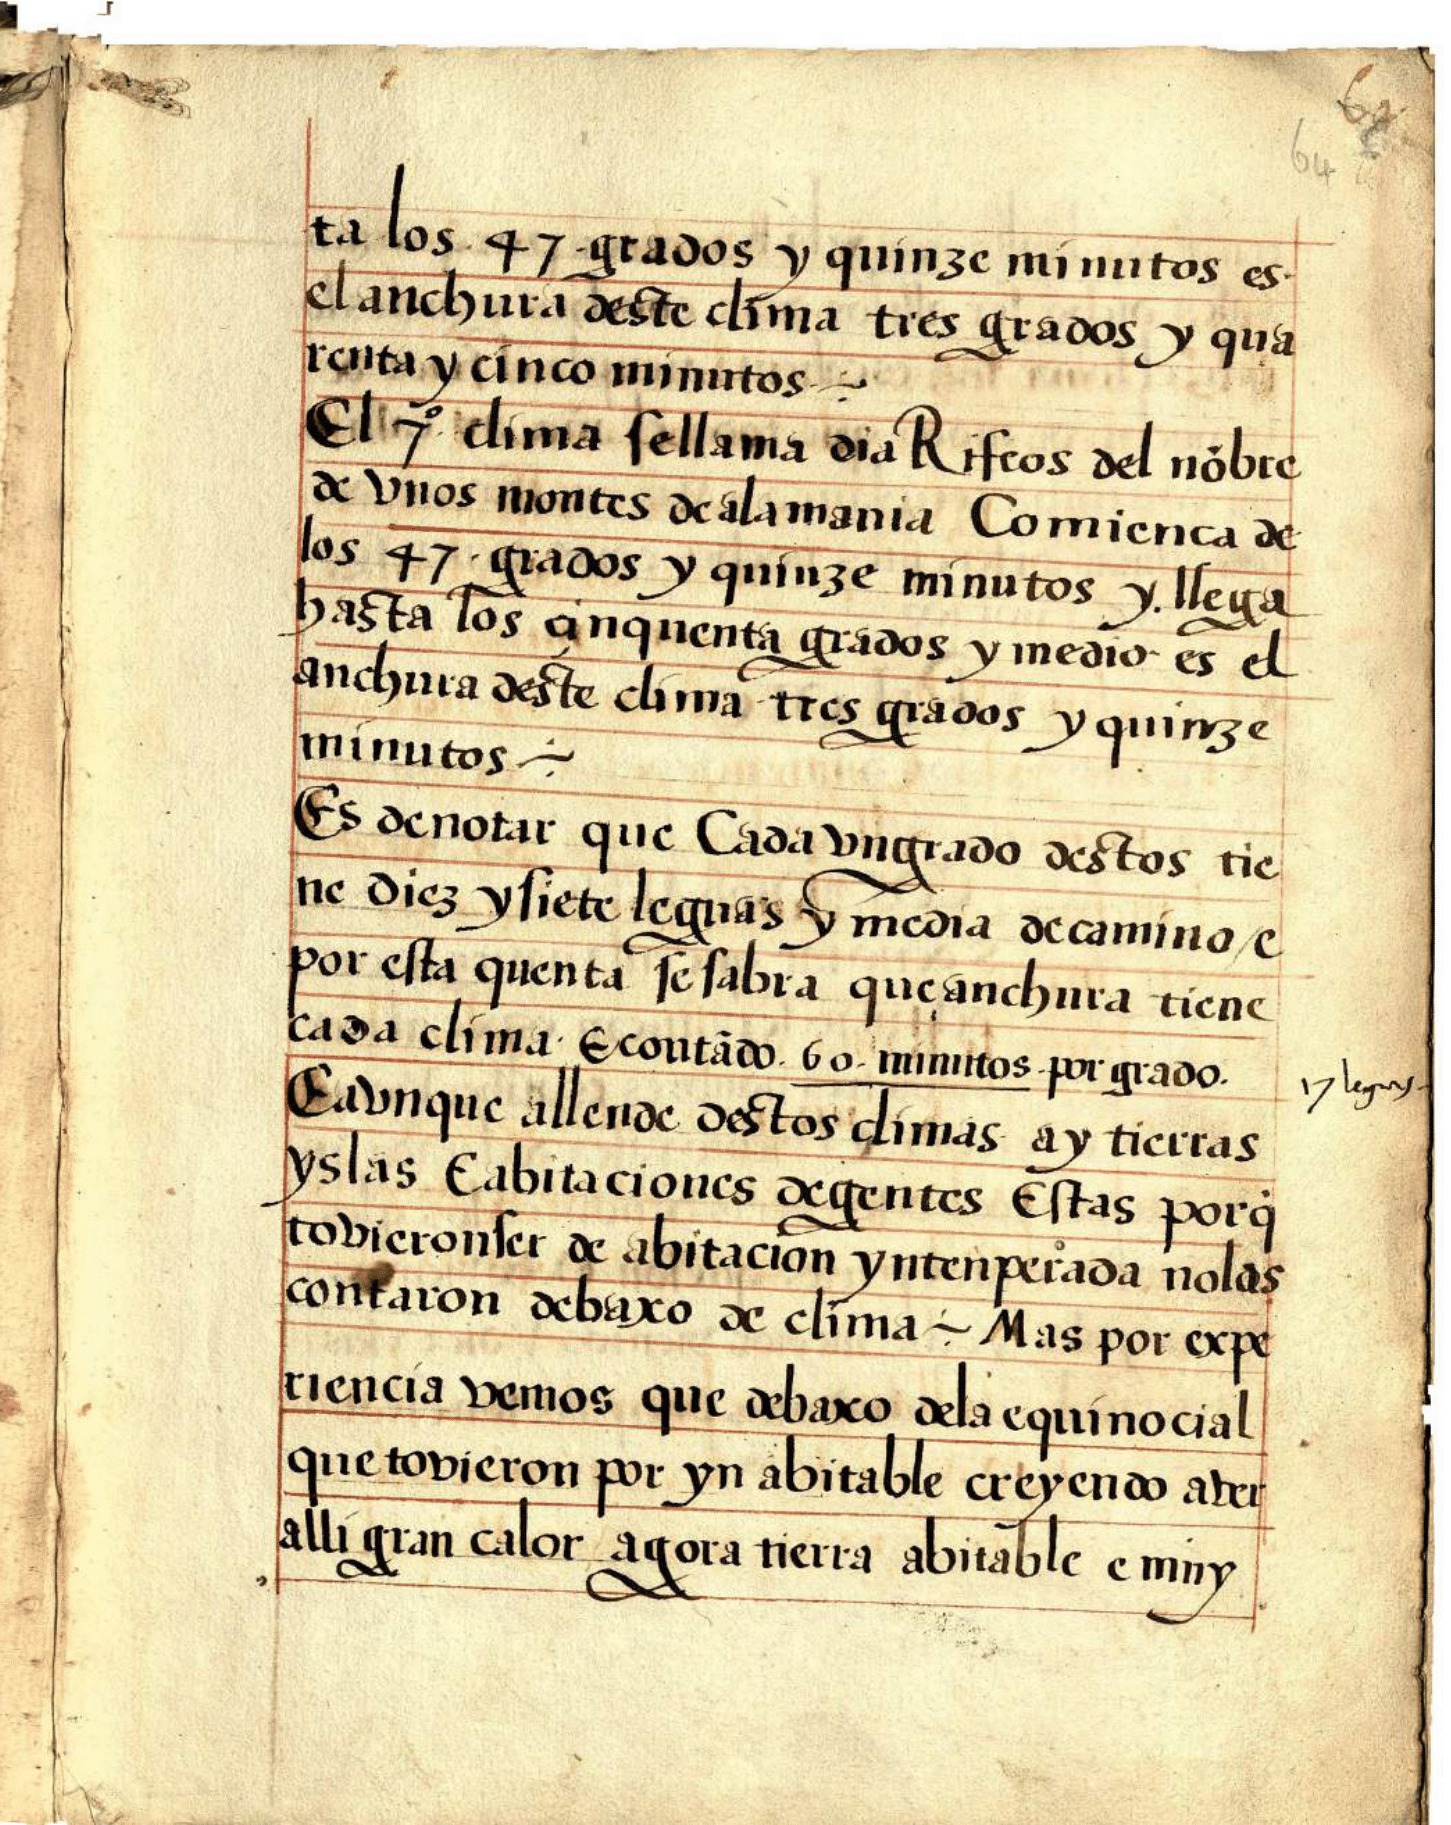 64
ta los 47 grados y quinze minutos es
el anchura deste clima tres grados y qua
renta y cinco minutos
El 7º clima sellama dia Rifeos del nõbre
de vnos montes de alamania Comienca de
los 47 grados y quinze minutos y llega
hasta los cinquenta grados y medio es el
anchura deste clima tres grados y quinze
minutos
Es denotar que Cada vngrado destos tie
ne diez ysiete leguas y media decamino / e
por esta quenta se sabra que anchura tiene
cada clima. E contãdo. 60. minutos por grado.
17 leguas
Eavnque allende destos climas ay tierras
yslas E abitaciones degentes Estas porq̇
tovieronser de abitacion yntenperada nolas
contaron debaxo de clima Mas por expe
riencia vemos que debaxo dela equinocial
que tovieron por yn abitable creyendo aver
alli gran calor agora tierra abitable e muy